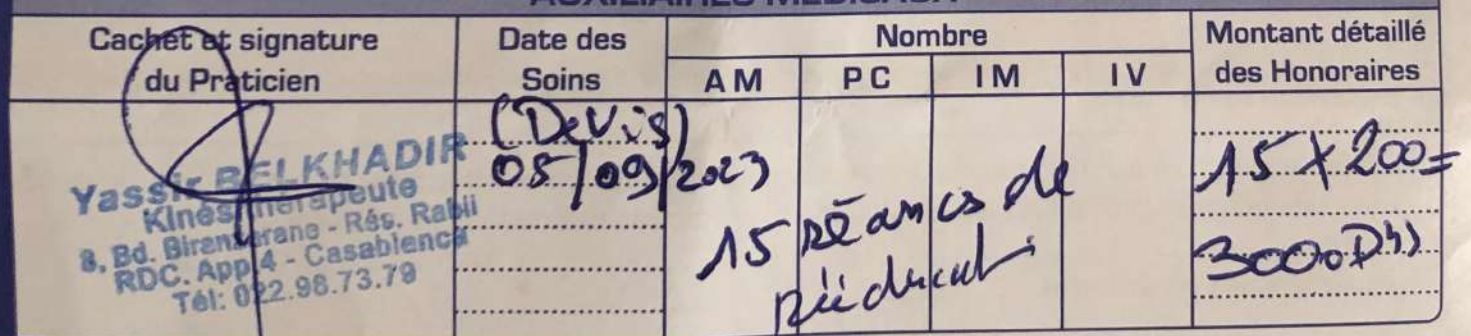 AUXILIAIRES MEDICAUX
Cachet et signature du Praticien
Date des Soins
Nombre
AM PC IM IV
Montant détaillé des Honoraires
Yassir BELKHADIR
Kinésithérapeute
8, Bd. Biranzarane - Rés. Rabii
RDC. App 4 - Casablanca
Tél: 022.98.73.79
(Devis)
05/09/2023
15 séances de
rééducati
15 x 200 =
3000 Dhs